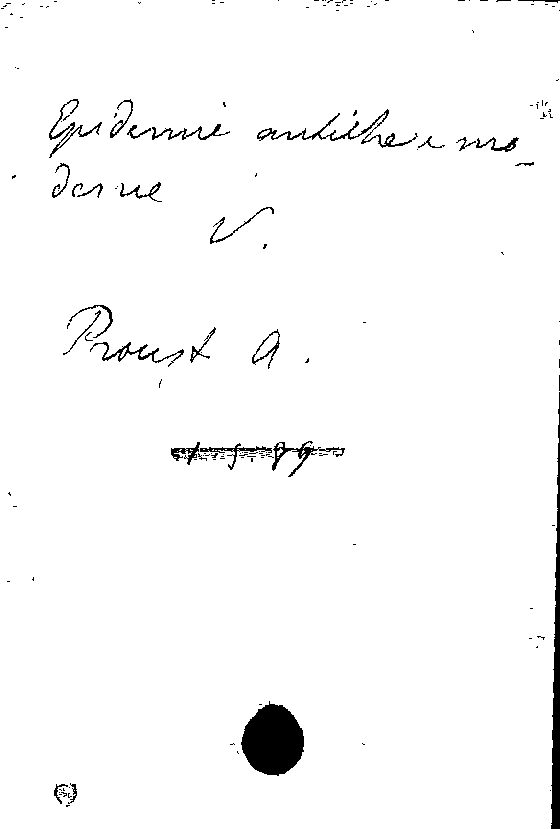 Epidemie antiche e mo-
derne
V.
Proust A.